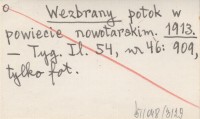 Wezbrany potok w
powiecie nowotarskim. 1913.
— Tyg. Il. 54, nr 46: 909,
tylko fot.